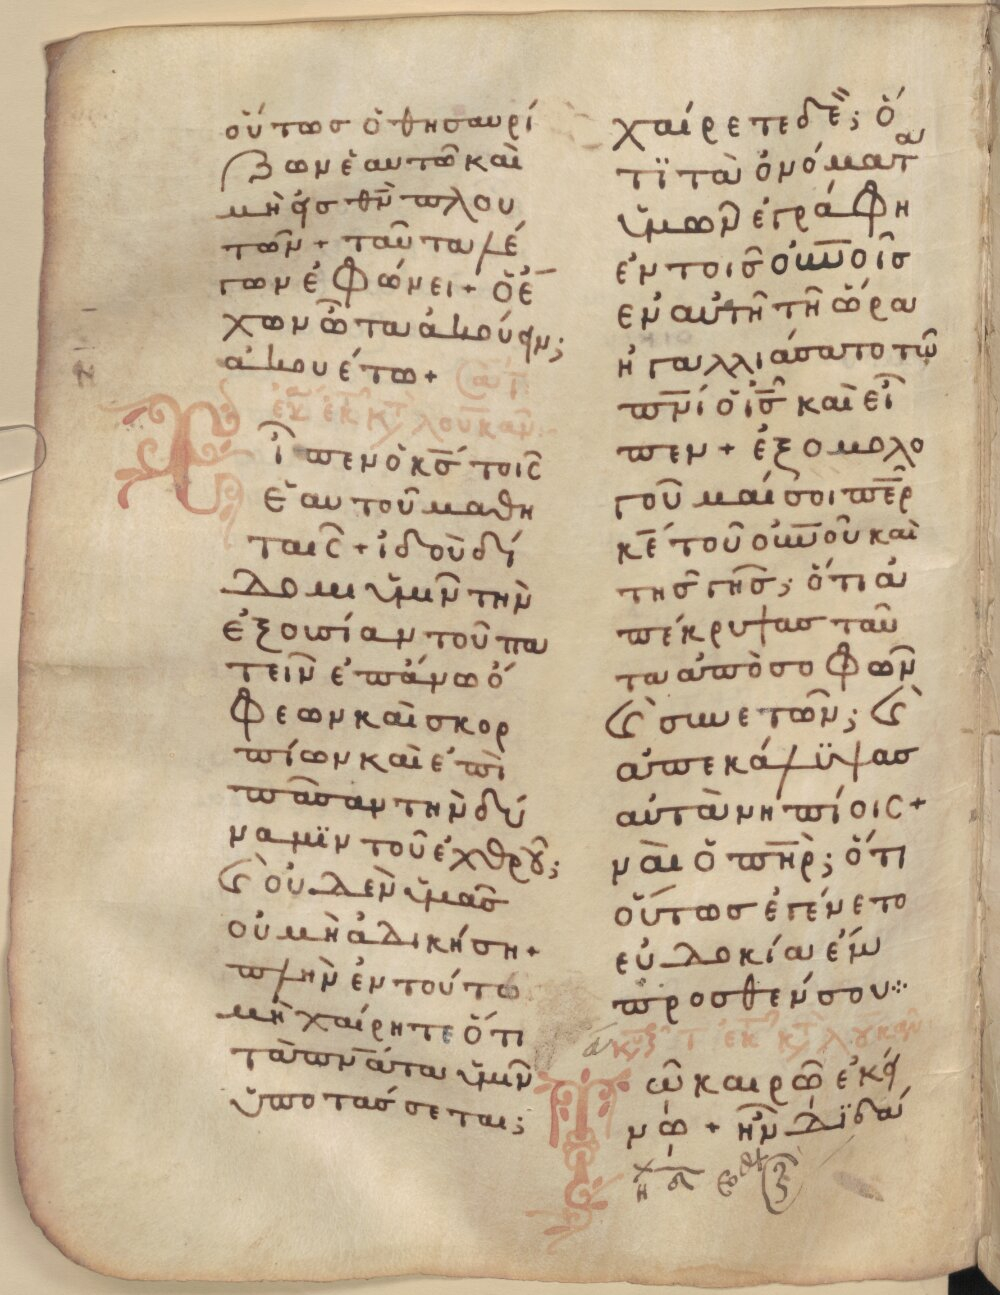 οὕτωσ ὁ θησαυρί
ζων ἑαυτῶ καὶ
μὴ εἰσ θν̅ πλου
τῶν + ταῦτα λέ
γων ἐφώνει + ὁ ἔ
χων ὦτα ἀκούειν;
ἀκουέτω +
ἐκ κτ λουκαν
Εἶπεν ὁ κσ̅ τοισ
ἑαυτοῦ μαθη
ταισ + ἰδοὺ δί
δομι ὑμῖν τὴν
ἐξουσίαν τοῦ πα
τεῖν ἐπάνω ὄ
φεων καὶ σκορ
πίων καὶ ἐπὶ
πᾶσαν τὴν δύ
ναμϊν τοῦ ἐχθροῦ;
καὶ οὐδὲν ὑμᾶσ
οὐ μὴ ἀδικήση +
πλὴν ἐν τούτω
μὴ χαίρητε ὅτι
τὰ πνα̅τα ὑμῖν
ὑποτάσσεται;
χαίρετε δὲ; ὅ
τϊ τὰ ὀνόματα
ὑμῶν ἐγράφη
ἐν τοισ οὐνοισ
ἐν αὐτῆ τῆ ὥρα
ἠγαλλιάσατο τῶ
πνι̅ ὁ ισ̅ καὶ εἶ
πεν + ἐξομολο
γοῦμαί σοι περ̅
κε̅ τοῦ οὐνοῦ καὶ
τησ γησ; ὅτι ἀ
πέκρυψασ ταῦ
τα ἀπὸ σοφῶν
καὶ συνετῶν; καὶ
ἀπεκάλϋψασ
αὐτὰ νηπίοισ +
ναὶ ὁ πηρ̅; ὅτι
οὕτωσ ἐγένετο
εὐδοκία ἔν
προσθέν σου ⁘
κυ ι ἐκ κτ λουκαν
Τῶ καιρῶ ἐκεί
νω + ἦν διδά